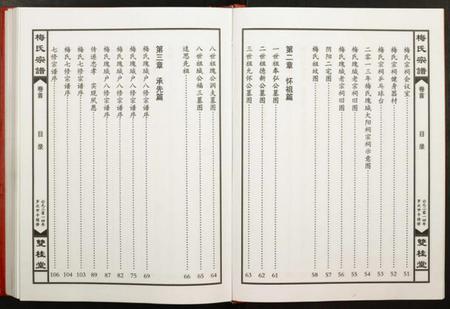 梅氏宗譜
卷首
目录
雙桂堂
梅氏宗祠会议室 51
梅氏宗祠健身器材 52
梅氏宗祠乒乓球台 53
二零一三年梅氏瑰城太阳祠宗祠示意图 54
梅氏瑰城老宗祠旧图 55
梅氏瑰城老宗祠旧图 56
阴阳二宅图 57
梅氏祖坟图 58
第二章 怀祖篇
一世祖奉仁公墓图 61
二世祖德新公墓图 62
三世祖允怀公墓图 63
八世祖瑰公润夫墓图 64
八世祖城公福三墓图 65
追思先祖 66
第三章 承先篇
梅氏瑰城户八修宗谱序 69
梅氏瑰城户八修宗谱序 75
梅氏瑰城户八修宗谱序 82
梅氏瑰城户八修宗谱序 87
传递忠孝 实现夙愿 89
梅氏七修宗谱序 103
梅氏七修宗谱序 104
七修宗谱序 106
梅氏宗譜
卷首
目录
雙桂堂